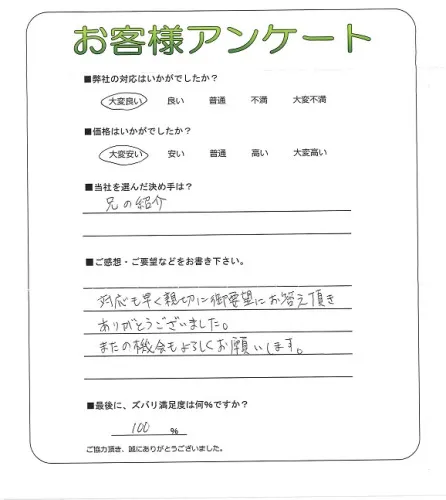 お客様アンケート
■弊社の対応はいかがでしたか?
大変良い 良い 普通 不満 大変不満
■価格はいかがでしたか?
大変安い 安い 普通 高い 大変高い
■当社を選んだ決め手は?
兄の紹介
■ご感想・ご要望などをお書き下さい。
対応も早く親切に御要望にお答え頂き
ありがとうございました。
またの機会もよろしくお願いします。
■最後に、ズバリ満足度は何%ですか?
100 %
ご協力頂き、誠にありがとうございました。